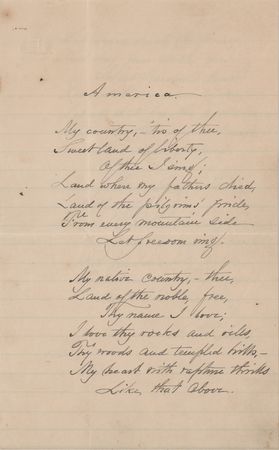 America.
My country, - 'tis of thee,
Sweet land of liberty,
Of thee I sing;
Land where my fathers died,
Land of the pilgrims' pride,
From every mountain side
Let freedom ring.
My native country, - thee,
Land of the noble, free,
Thy name I love;
I love thy rocks and rills,
Thy woods and templed hills, -
My heart with rapture thrills
Like that above.